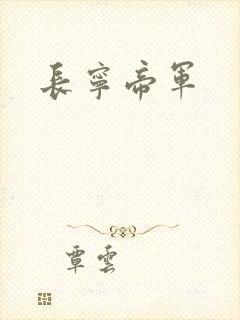 長寧帝軍
覃雲